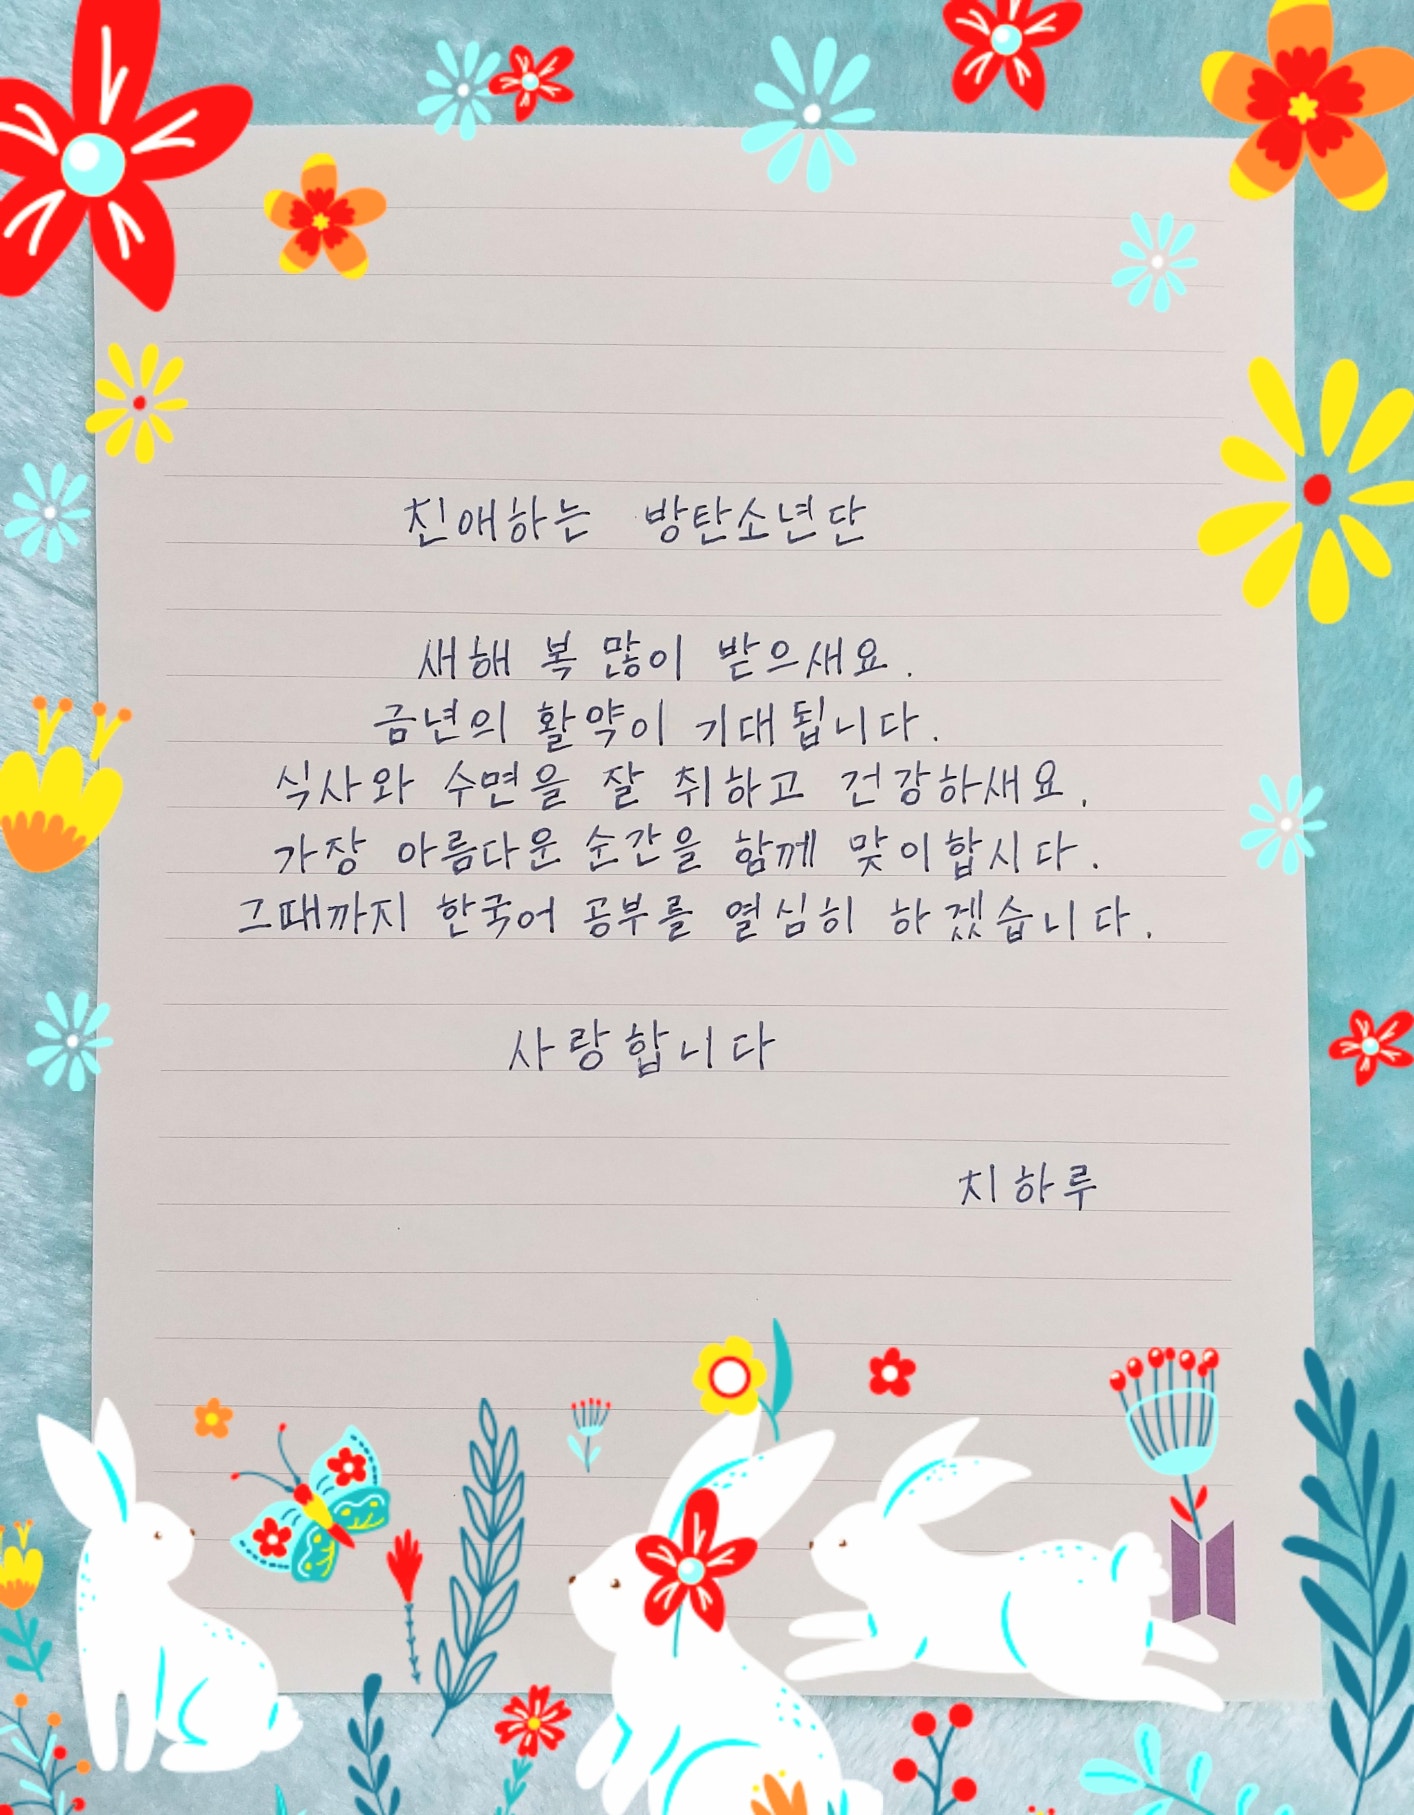 친애하는 방탄소년단
새해 복 많이 받으새요.
금년의 활약이 기대됩니다.
식사와 수면을 잘 취하고 건강하새요.
가장 아름다운 순간을 함께 맞이합시다.
그때까지 한국어 공부를 열심히 하겠습니다.
사랑합니다
치하루